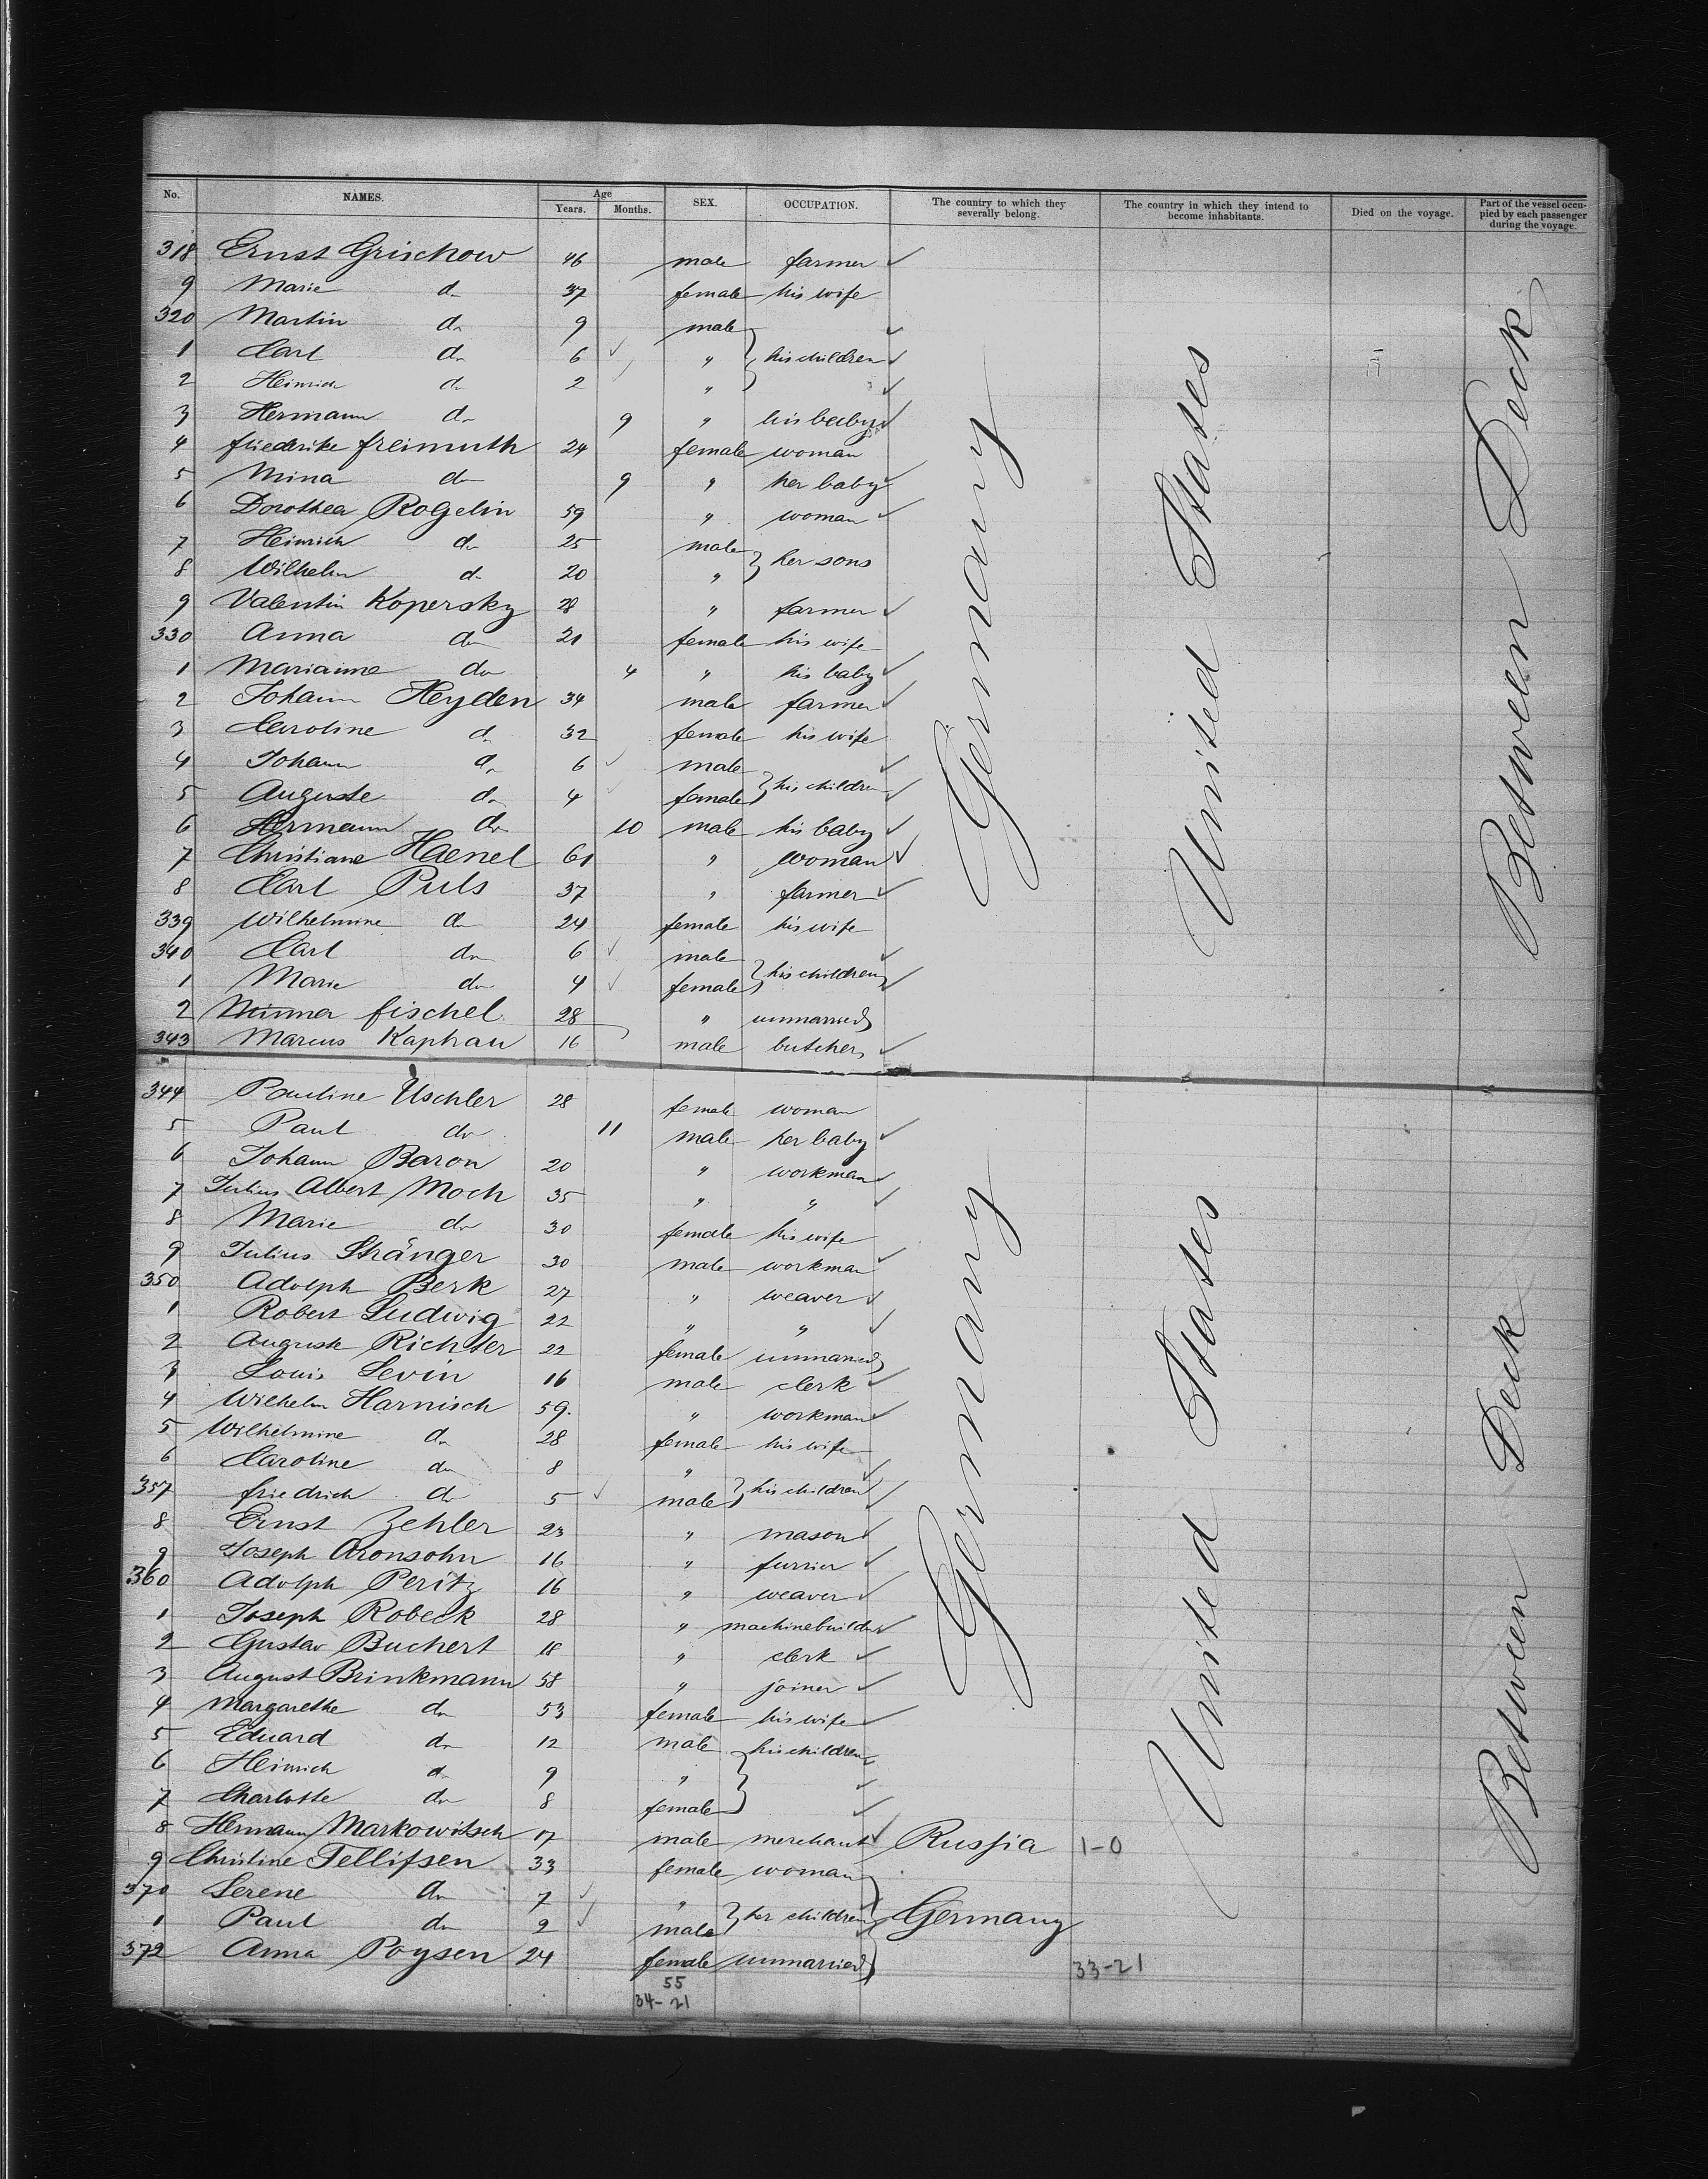 No. NAMES. Age Years. Months. SEX. OCCUPATION. The country to which they severally belong. The country in which they intend to become inhabitants. Died on the voyage. Part of the vessel occupied by each passenger during the voyage.
318 Ernst Grischow 46 male farmer
9 Marie do 37 female his wife
320 Martin do 9 male
1 Carl do 6 " his children
2 Heinrich do 2 "
3 Hermann do 9 " his baby
4 friederike freimuth 24 female woman
5 Mina do 9 " her baby
6 Dorothea Rogelin 59 " woman
7 Heinrich do 25 male her sons
8 Wilhelm do 20 "
9 Valentin Kopersky 28 " farmer
330 Anna do 21 female his wife
1 Marianne do 4 " his baby
2 Johann Heyden 34 male farmer
3 Caroline do 32 female his wife
4 Johann do 6 male
5 Auguste do 4 female his children
6 Hermann do 10 male his baby
7 Christiane Haenel 61 " woman
8 Carl Puls 37 " farmer
339 Wilhelmine do 24 female his wife
340 Carl do 6 male
1 Marie do 4 female his children
2 Minna fischel 28 " unmarried
343 Marcus Kaphan 16 male butcher
Germany United States Between Deck
344 Pauline Uschler 28 female woman
5 Paul do 11 male her baby
6 Johann Baron 20 " workman
7 Julius Albert Moch 35 " "
8 Marie do 30 female his wife
9 Julius Stränger 30 male workman
350 Adolph Berk 27 " weaver
1 Robert Ludwig 22 " "
2 Auguste Richter 22 female unmarried
3 Louis Levin 16 male clerk
4 Wilhelm Harnisch 59. " workman
5 Wilhelmine do 28 female his wife
6 Caroline do 8 "
357 friedrich do 5 male his children
8 Ernst Zehler 23 " mason
9 Joseph Aronsohn 16 " furrier
360 Adolph Peritz 16 " weaver
1 Joseph Robeck 28 " machinebuilder
2 Gustav Buchert 18 " clerk
3 August Brinkmann 58 " joiner
4 Margarethe do 53 female his wife
5 Eduard do 12 male his children
6 Heinrich do 9 "
7 Charlotte do 8 female
Germany United States Between Deck
8 Hermann Markowitsch 17 male merchant Russia 1-0
9 Christine Tellifsen 33 female woman
370 Serene do 7 "
1 Paul do 2 male her children Germany
372 Anna Poysen 24 female unmarried
33-21
55
34-21